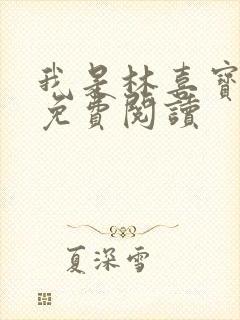 我是林喜寶
免費閱讀
夏深雪